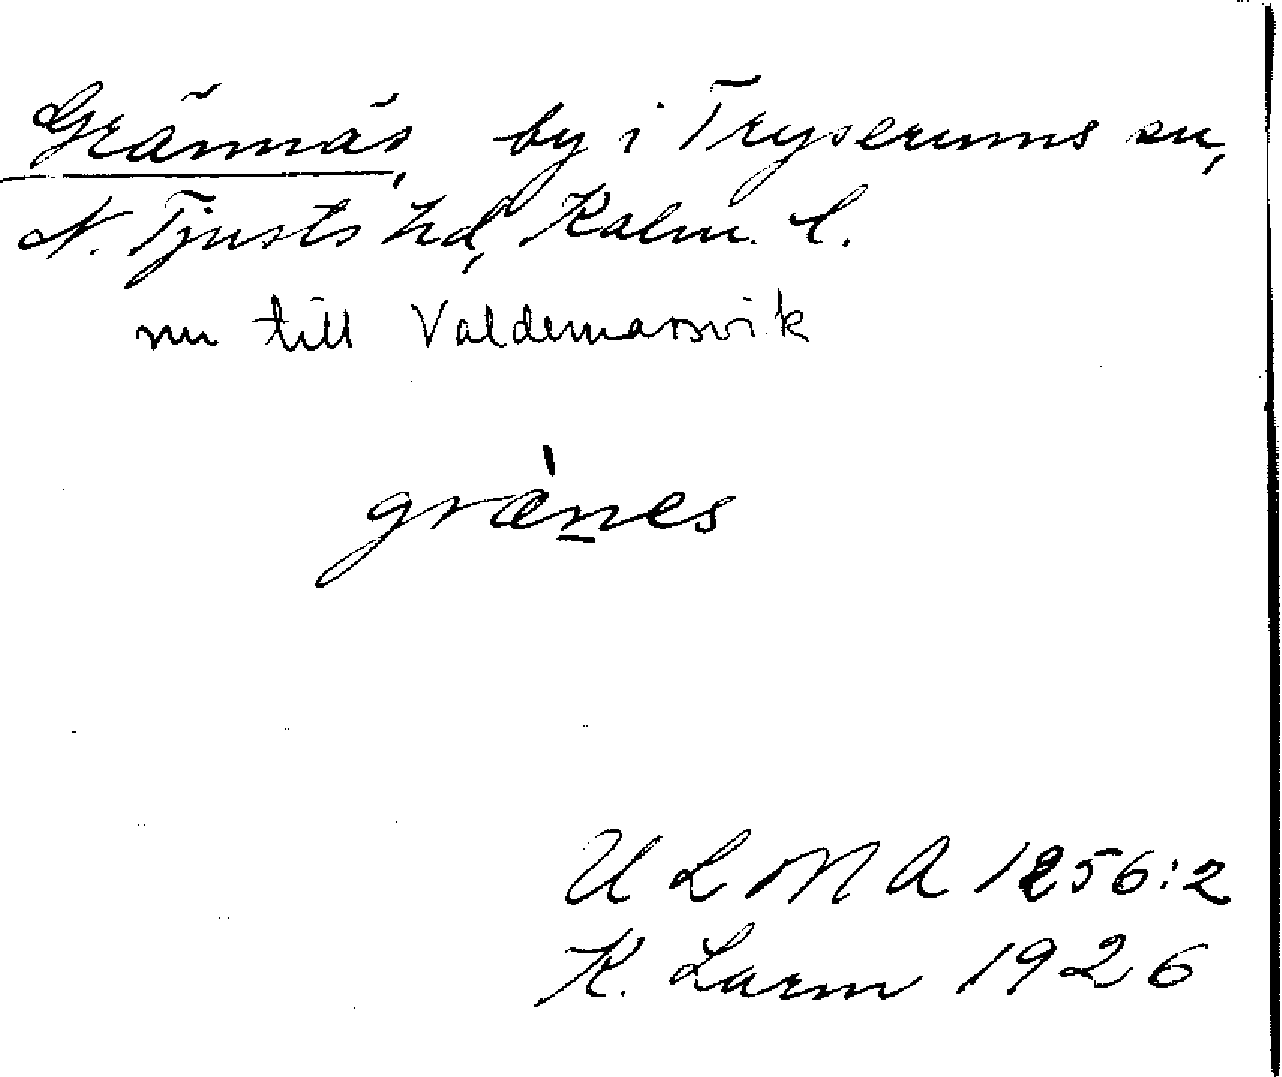 Grännäs, by i Tryserums sn,
N. Tjusts hd, Kalm. l.
nu till Valdemarsvik
græ̀n̲es
U L M A 1256:2
K. Larm 1926